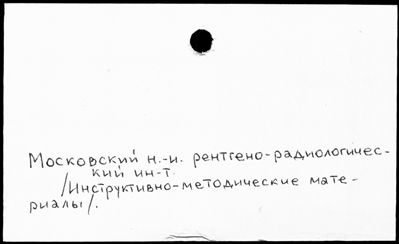 Московский н.-и. рентгено-радиологичес-
кий ин-т.
/Инструктивно-методические мате-
риалы/.